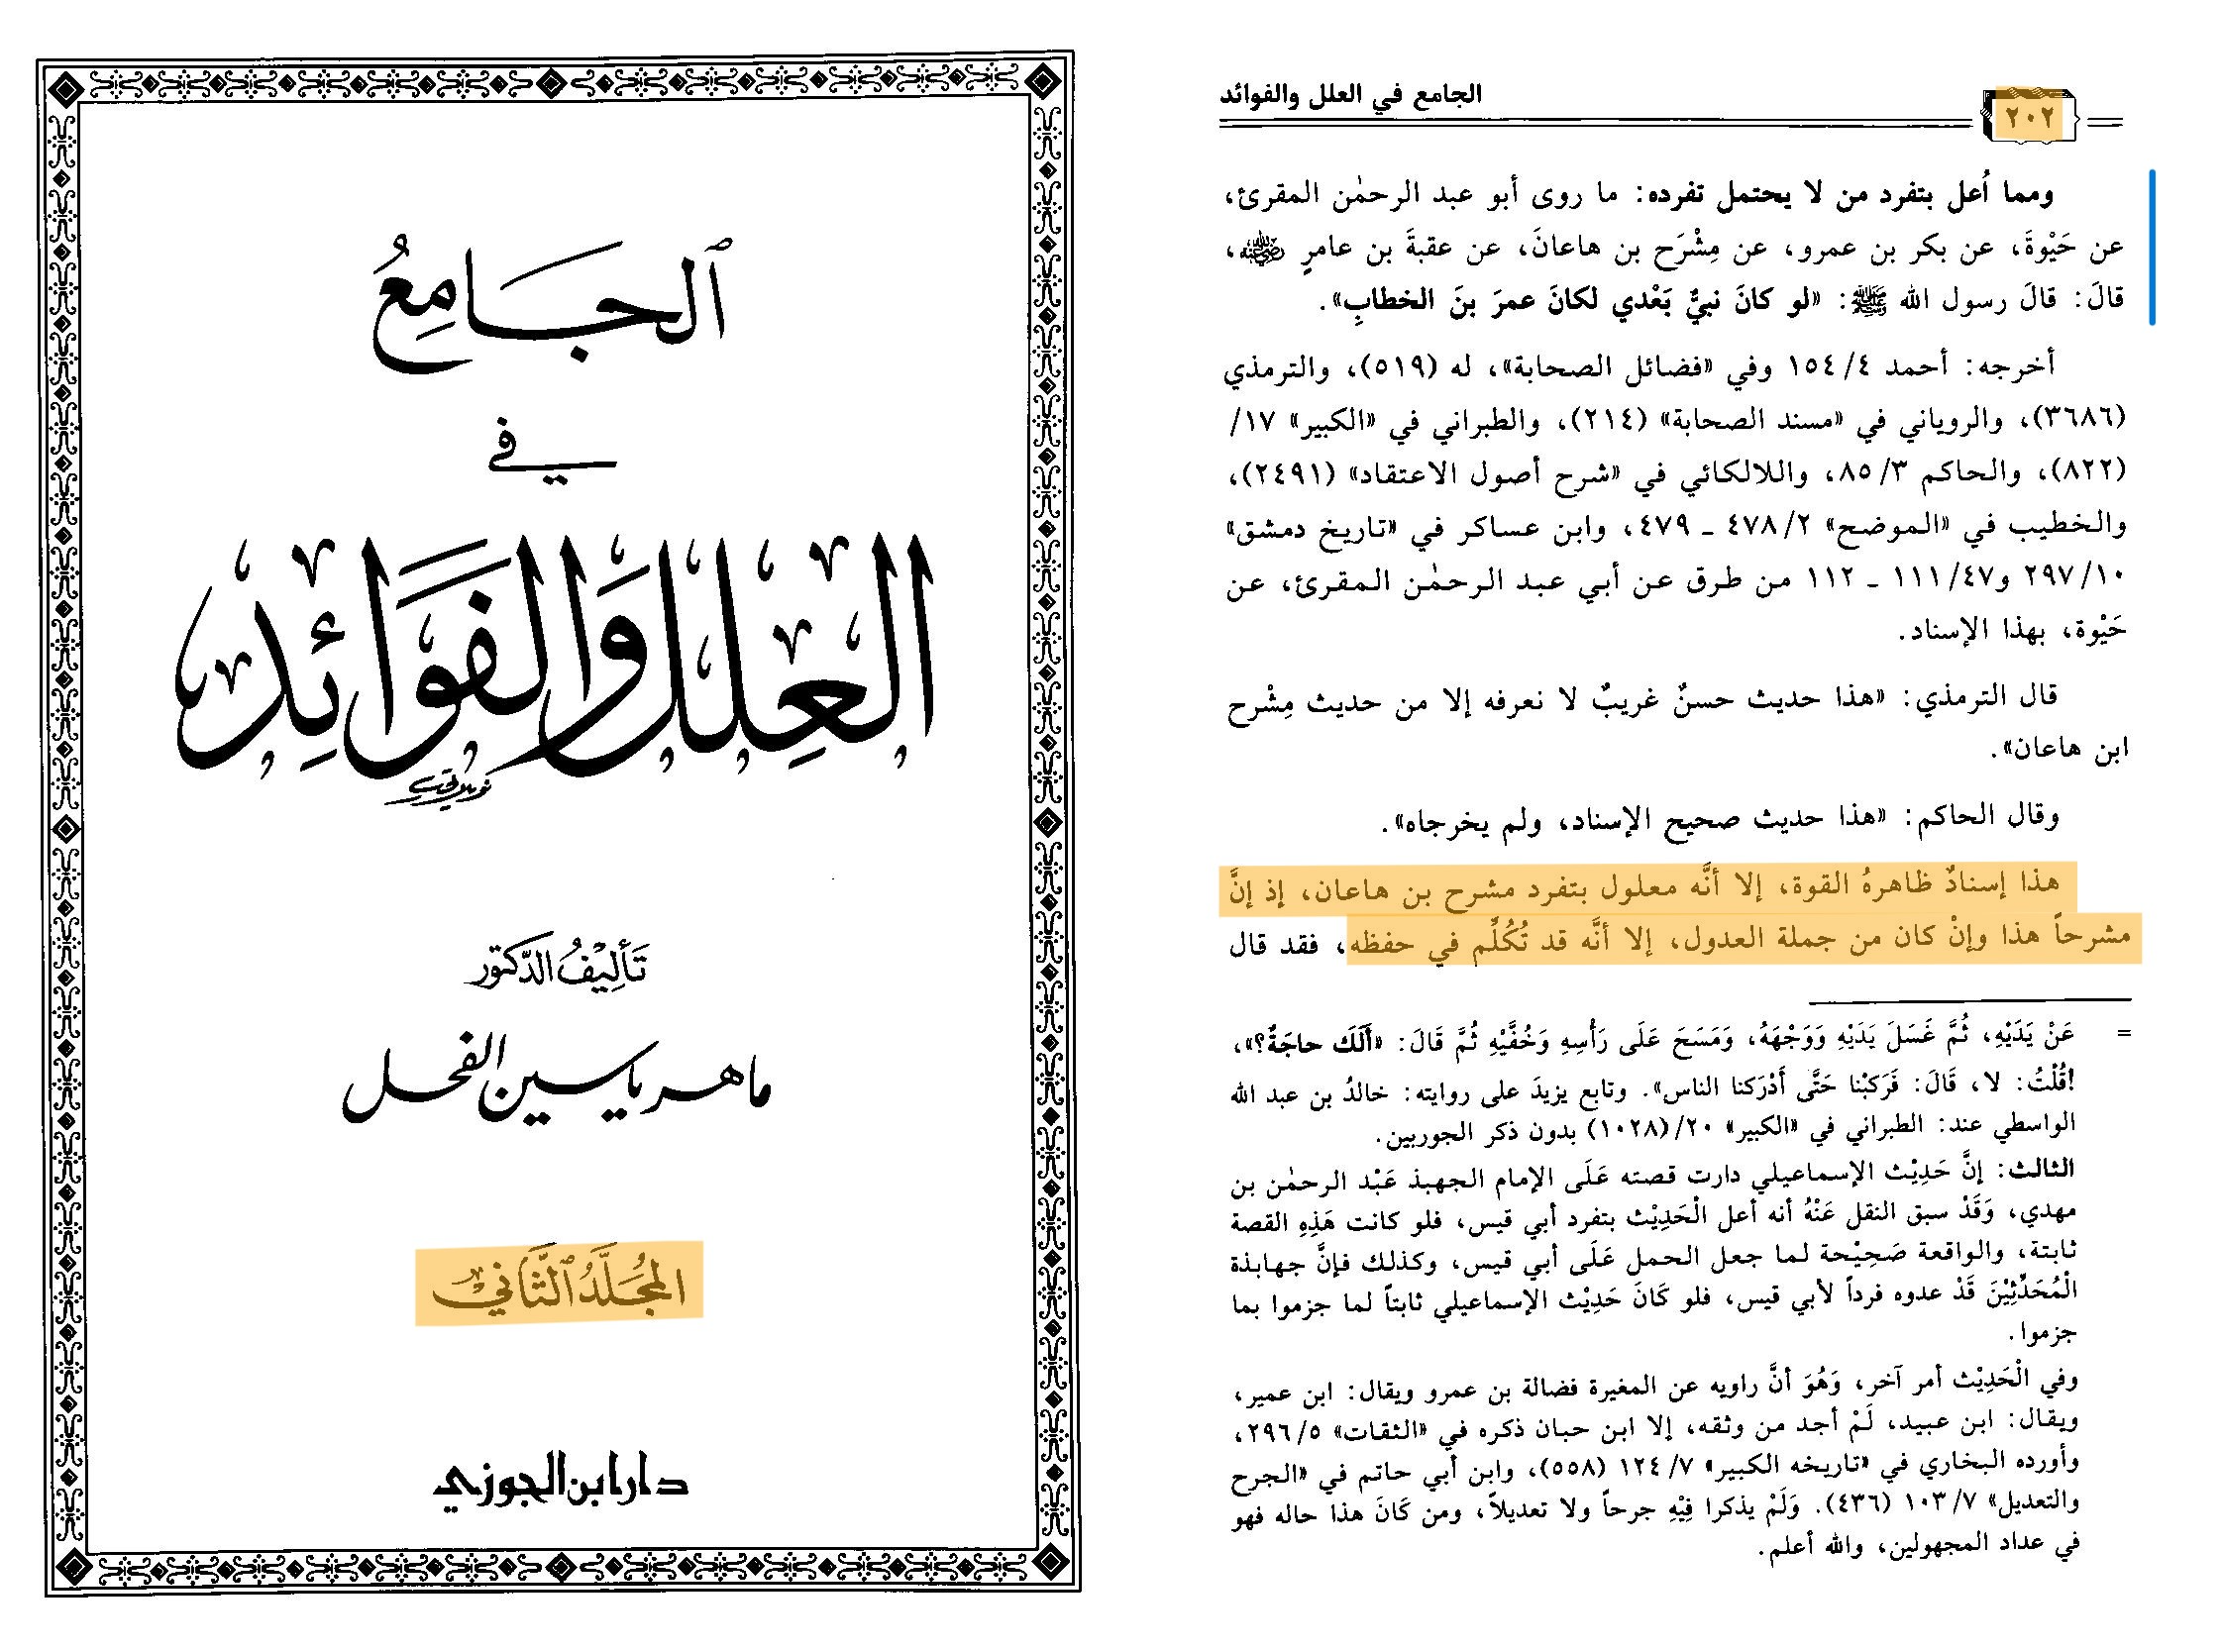 الجامع
في
العلل والفوائد
تأليف الدكتور
ماهر ياسين الفحل
المجلد الثاني
دار ابن الجوزي
الجامع في العلل والفوائد
٢٠٢
ومما أُعل بتفرد من لا يحتمل تفرده: ما روى أبو عبد الرحمٰن المقرئ،
عن حَيْوةَ، عن بكر بن عمرو، عن مِشْرَح بن هاعانَ، عن عقبةَ بن عامرٍ ﵁،
قالَ: قالَ رسول الله ﷺ: «لو كانَ نبيٌّ بَعْدي لكانَ عمرَ بنَ الخطابِ».
أخرجه: أحمد ٤/ ١٥٤ وفي «فضائل الصحابة»، له (٥١٩)، والترمذي
(٣٦٨٦)، والروياني في «مسند الصحابة» (٢١٤)، والطبراني في «الكبير» ١٧/
(٨٢٢)، والحاكم ٣/ ٨٥، واللالكائي في «شرح أصول الاعتقاد» (٢٤٩١)،
والخطيب في «الموضح» ٢/ ٤٧٨ ـ ٤٧٩، وابن عساكر في «تاريخ دمشق»
١٠/ ٢٩٧ و٤٧/ ١١١ ـ ١١٢ من طرق عن أبي عبد الرحمٰن المقرئ، عن
حَيْوة، بهذا الإسناد.
قال الترمذي: «هذا حديث حسنٌ غريبٌ لا نعرفه إلا من حديث مِشْرح
ابن هاعان».
وقال الحاكم: «هذا حديث صحيح الإسناد، ولم يخرجاه».
هذا إسنادٌ ظاهرهُ القوة، إلا أنَّه معلول بتفرد مشرح بن هاعان، إذ إنَّ
مشرحاً هذا وإنْ كان من جملة العدول، إلا أنَّه قد تُكُلِّم في حفظه، فقد قال
= عَنْ يَدَيْهِ، ثُمَّ غَسَلَ يَدَيْهِ وَوَجْهَهُ، وَمَسَحَ عَلَى رَأْسِهِ وَخُفَّيْهِ ثُمَّ قَالَ: «أَلَكَ حاجَةٌ؟»،
!قُلْتُ: لا، قَالَ: فَرَكبْنا حَتَّى أَدْرَكنا الناس». وتابع يزيدَ على روايته: خالدُ بن عبد الله
الواسطي عند: الطبراني في «الكبير» ٢٠/ (١٠٢٨) بدون ذكر الجوربين.
الثالث: إنَّ حَدِيْث الإسماعيلي دارت قصته عَلَى الإمام الجهبذ عَبْد الرحمٰن بن
مهدي، وَقَدْ سبق النقل عَنْهُ أنه أعل الْحَدِيْث بتفرد أبي قيس، فلو كانت هَذِهِ القصة
ثابتة، والواقعة صَحِيْحة لما جعل الحمل عَلَى أبي قيس، وكذلك فإنَّ جهابذة
الْمُحَدِّثِيْنَ قَدْ عدوه فرداً لأبي قيس، فلو كَانَ حَدِيْث الإسماعيلي ثابتاً لما جزموا بما
جزموا.
وفي الْحَدِيْث أمر آخر، وَهُوَ أنَّ راويه عن المغيرة فضالة بن عمرو ويقال: ابن عمير،
ويقال: ابن عبيد، لَمْ أجد من وثقه، إلا ابن حبان ذكره في «الثقات» ٥/ ٢٩٦،
وأورده البخاري في «تاريخه الكبير» ٧/ ١٢٤ (٥٥٨)، وابن أبي حاتم في «الجرح
والتعديل» ٧/ ١٠٣ (٤٣٦). وَلَمْ يذكرا فِيْهِ جرحاً ولا تعديلاً، ومن كَانَ هذا حاله فهو
في عداد المجهولين، والله أعلم.